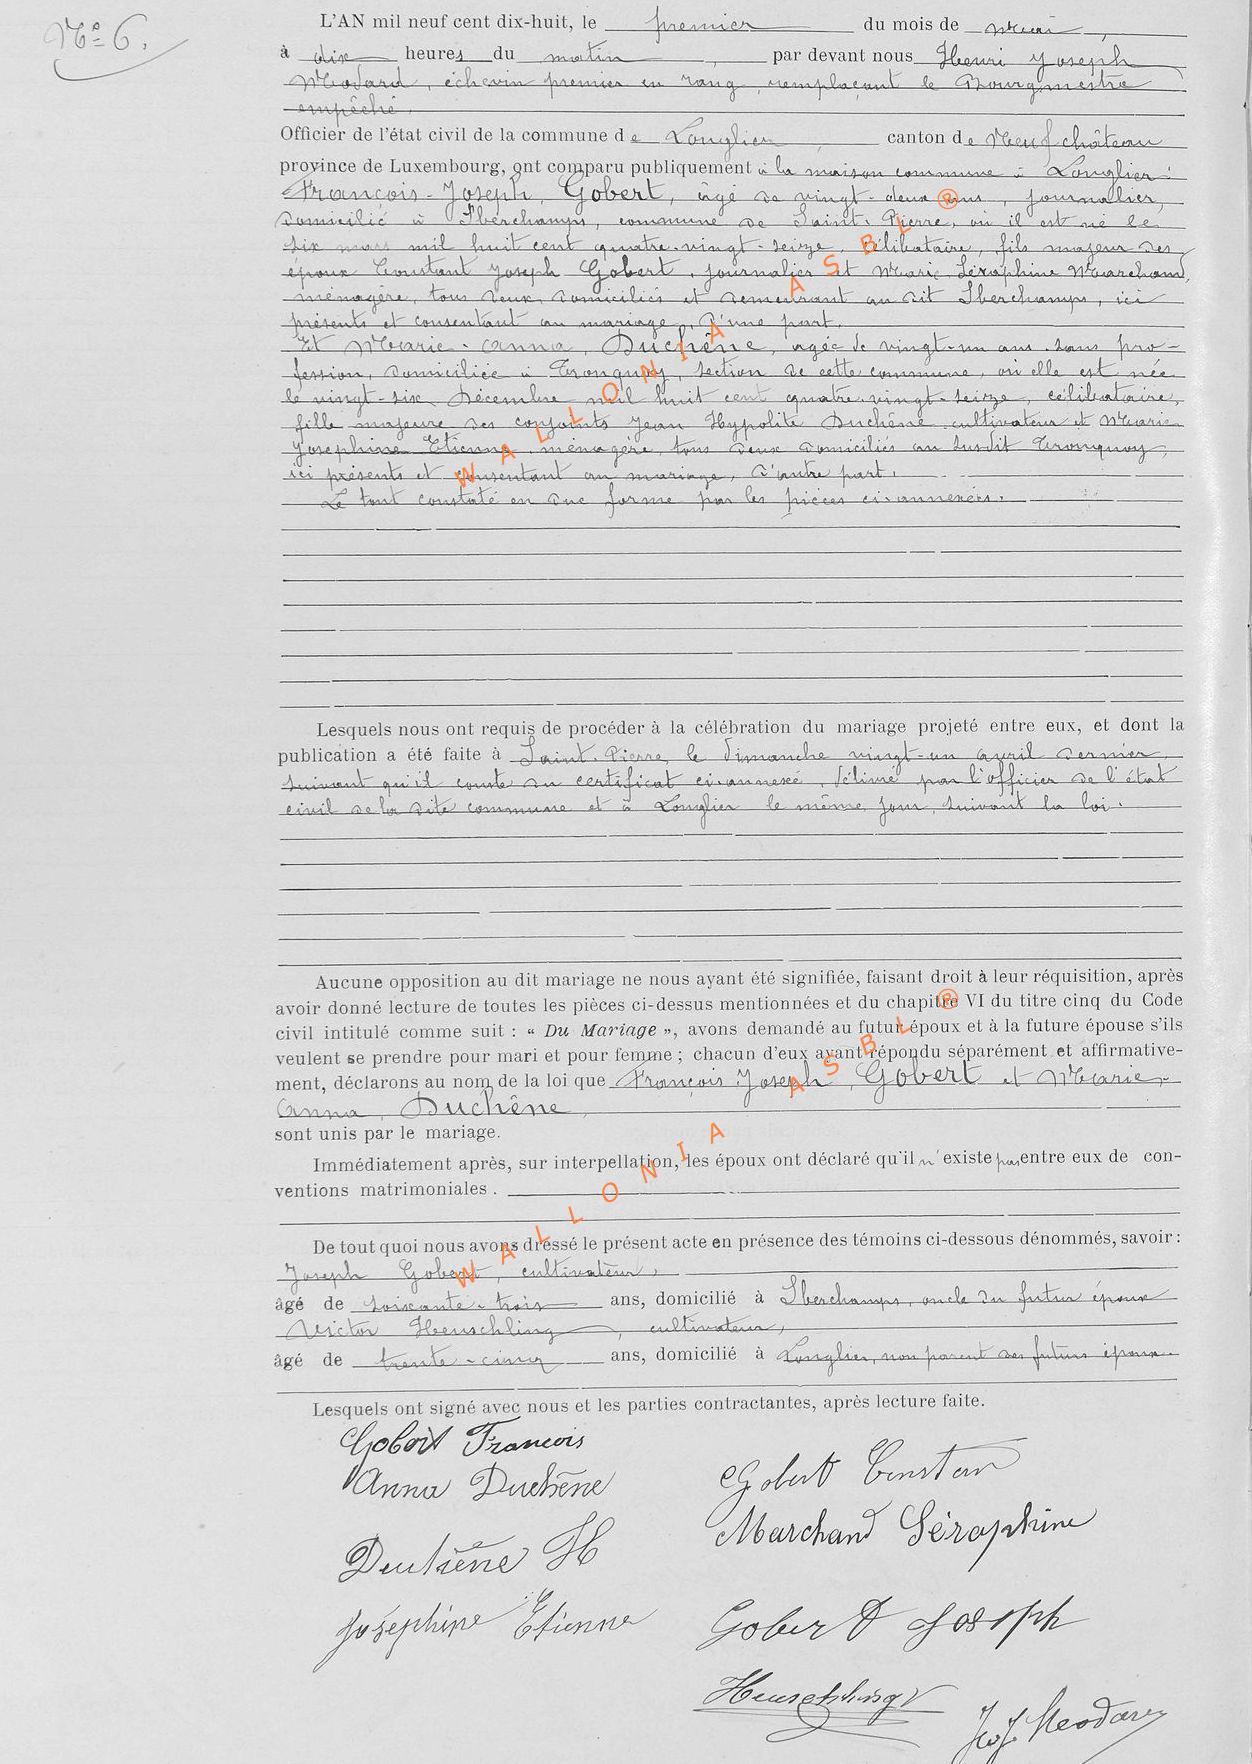 N° 6.
L'AN mil neuf cent dix-huit, le premier du mois de mai,
à dix heures du matin, par devant nous Henri Joseph
Modard, échevin premier en rang, remplaçant le Bourgmestre
empêché,
Officier de l'état civil de la commune de Longlier, canton de Neufchâteau
province de Luxembourg, ont comparu publiquement à la maison commune à Longlier:
François-Joseph, Gobert, âgé de vingt-deux ans, journalier,
domicilié à Sberchamps, commune de Saint-Pierre, où il est né le
six mars mil huit cent quatre-vingt-seize, célibataire, fils majeur des
époux Constant Joseph Gobert, journalier et Marie Séraphine Marchand,
ménagère, tous deux domiciliés et demeurant au dit Sberchamps, ici
présents et consentant au mariage, d'une part.
Et Marie-Anna, Duchêne, âgée de vingt-un ans, sans pro-
fession, domiciliée à Tronquoy, section de cette commune, où elle est née
le vingt-six Décembre mil huit cent quatre-vingt-seize, célibataire,
fille majeure des conjoints Jean Hypolite Duchêne, cultivateur et Marie
Josephine Etienne, ménagère, tous deux domiciliés au susdit Tronquoy,
ici présents et consentant au mariage, d'autre part.
Le tout constaté en due forme par les pièces ci-annexées.
Lesquels nous ont requis de procéder à la célébration du mariage projeté entre eux, et dont la
publication a été faite à Saint-Pierre, le dimanche vingt-un avril dernier,
suivant qu'il conste du certificat ci-annexé, délivré par l'officier de l'état
civil de la dite commune et à Longlier le même jour, suivant la loi.
Aucune opposition au dit mariage ne nous ayant été signifiée, faisant droit à leur réquisition, après
avoir donné lecture de toutes les pièces ci-dessus mentionnées et du chapitre VI du titre cinq du Code
civil intitulé comme suit : « Du Mariage », avons demandé au futur époux et à la future épouse s'ils
veulent se prendre pour mari et pour femme ; chacun d'eux ayant répondu séparément et affirmative-
ment, déclarons au nom de la loi que François Joseph, Gobert et Marie-
Anna, Duchêne,
sont unis par le mariage.
Immédiatement après, sur interpellation, les époux ont déclaré qu'il n'existe pas entre eux de con-
ventions matrimoniales.
De tout quoi nous avons dressé le présent acte en présence des témoins ci-dessous dénommés, savoir :
Joseph Gobert, cultivateur,
âgé de soixante-trois ans, domicilié à Sberchamps, oncle du futur époux
Victor Heuschling, cultivateur,
âgé de trente-cinq ans, domicilié à Longlier, non parent des futurs époux.
Lesquels ont signé avec nous et les parties contractantes, après lecture faite.
Gobert François
Anna Duchêne
Gobert Constan
Marchand Séraphine
Duchêne H
Joséphine Etienne
Gobert Joseph
Heuschling V
WALLONIA ASBL ®
WALLONIA ASBL ®